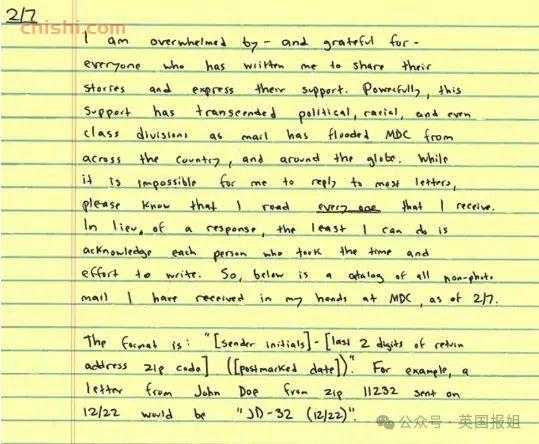 2/7
chishi.com
I am overwhelmed by - and grateful for -
everyone who has written me to share their
stories and express their support. Powerfully, this
support has transcended political, racial, and even
class divisions as mail has flooded MDC from
across the country, and around the globe. While
it is impossible for me to reply to most letters,
please know that I read every one that I receive.
In lieu, of a response, the least I can do is
acknowledge each person who took the time and
effort to write. So, below is a catalog of all non-photo
mail I have received in my hands at MDC, as of 2/7.
The format is: "[sender initials]-[last 2 digits of return
address zip code] ([postmarked date])". For example, a
letter from John Doe from zip 11232 sent on
12/22 would be "JD-32 (12/22)".
公众号·英国报姐